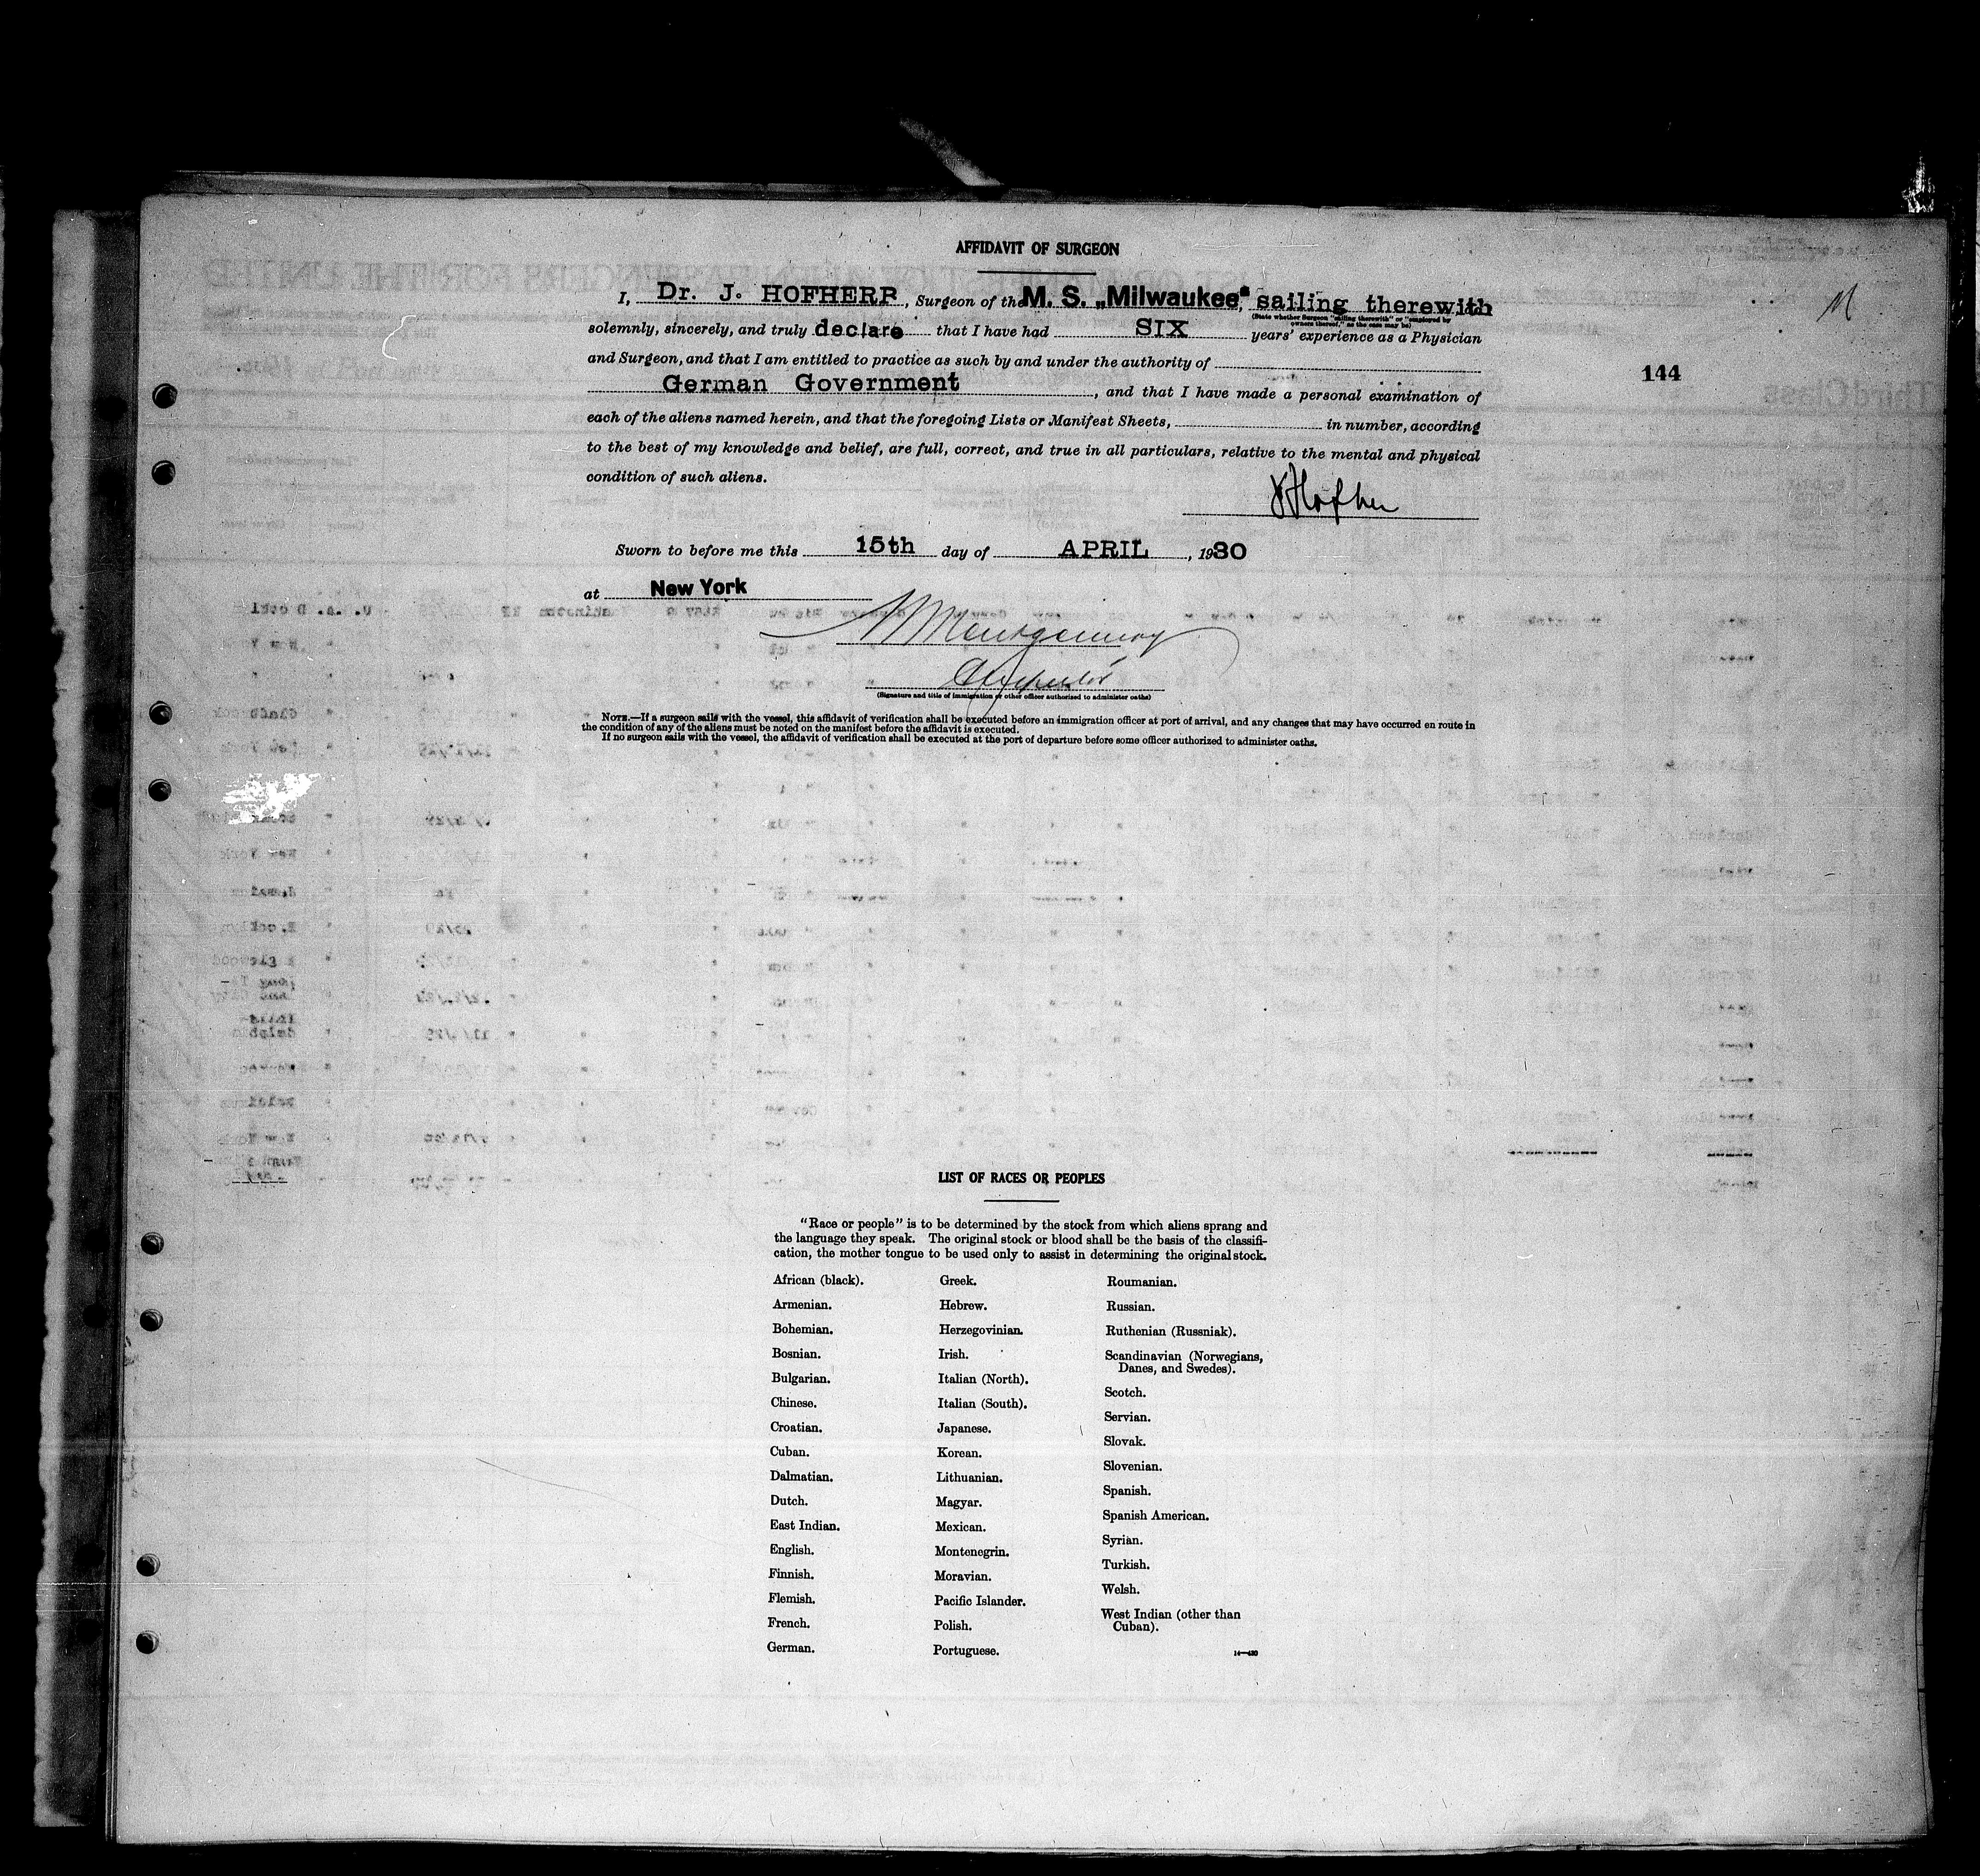 AFFIDAVIT OF SURGEON
I, Dr. J. HOFHERR, Surgeon of the M. S. „Milwaukee“, sailing therewith, do
(State whether Surgeon "sailing therewith" or "employed by
owners thereof," as the case may be)
solemnly, sincerely, and truly declare that I have had SIX years' experience as a Physician
and Surgeon, and that I am entitled to practice as such by and under the authority of
German Government, and that I have made a personal examination of
144
each of the aliens named herein, and that the foregoing Lists or Manifest Sheets, in number, according
to the best of my knowledge and belief, are full, correct, and true in all particulars, relative to the mental and physical
condition of such aliens.
Sworn to before me this 15th day of APRIL, 1930
at New York
Montgomery
(Signature and title of immigration or other officer authorized to administer oaths)
NOTE.—If a surgeon sails with the vessel, this affidavit of verification shall be executed before an immigration officer at port of arrival, and any changes that may have occurred en route in
the condition of any of the aliens must be noted on the manifest before the affidavit is executed.
If no surgeon sails with the vessel, the affidavit of verification shall be executed at the port of departure before some officer authorized to administer oaths.
LIST OF RACES OR PEOPLES
"Race or people" is to be determined by the stock from which aliens sprang and
the language they speak. The original stock or blood shall be the basis of the classifi-
cation, the mother tongue to be used only to assist in determining the original stock.
African (black).
Armenian.
Bohemian.
Bosnian.
Bulgarian.
Chinese.
Croatian.
Cuban.
Dalmatian.
Dutch.
East Indian.
English.
Finnish.
Flemish.
French.
German.
Greek.
Hebrew.
Herzegovinian.
Irish.
Italian (North).
Italian (South).
Japanese.
Korean.
Lithuanian.
Magyar.
Mexican.
Montenegrin.
Moravian.
Pacific Islander.
Polish.
Portuguese.
Roumanian.
Russian.
Ruthenian (Russniak).
Scandinavian (Norwegians,
Danes, and Swedes).
Scotch.
Servian.
Slovak.
Slovenian.
Spanish.
Spanish American.
Syrian.
Turkish.
Welsh.
West Indian (other than
Cuban).
14—430